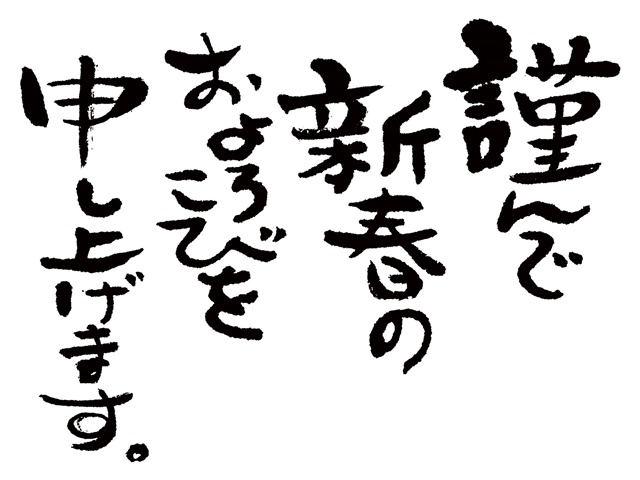 謹んで
新春の
およろこびを
申し上げます。